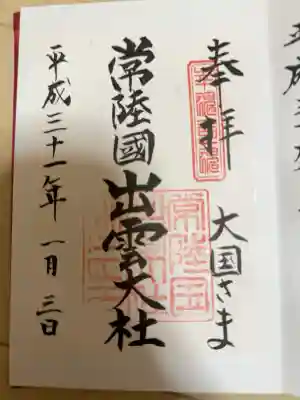 奉拝
大国さま
常陸國出雲大社
平成三十一年一月三日